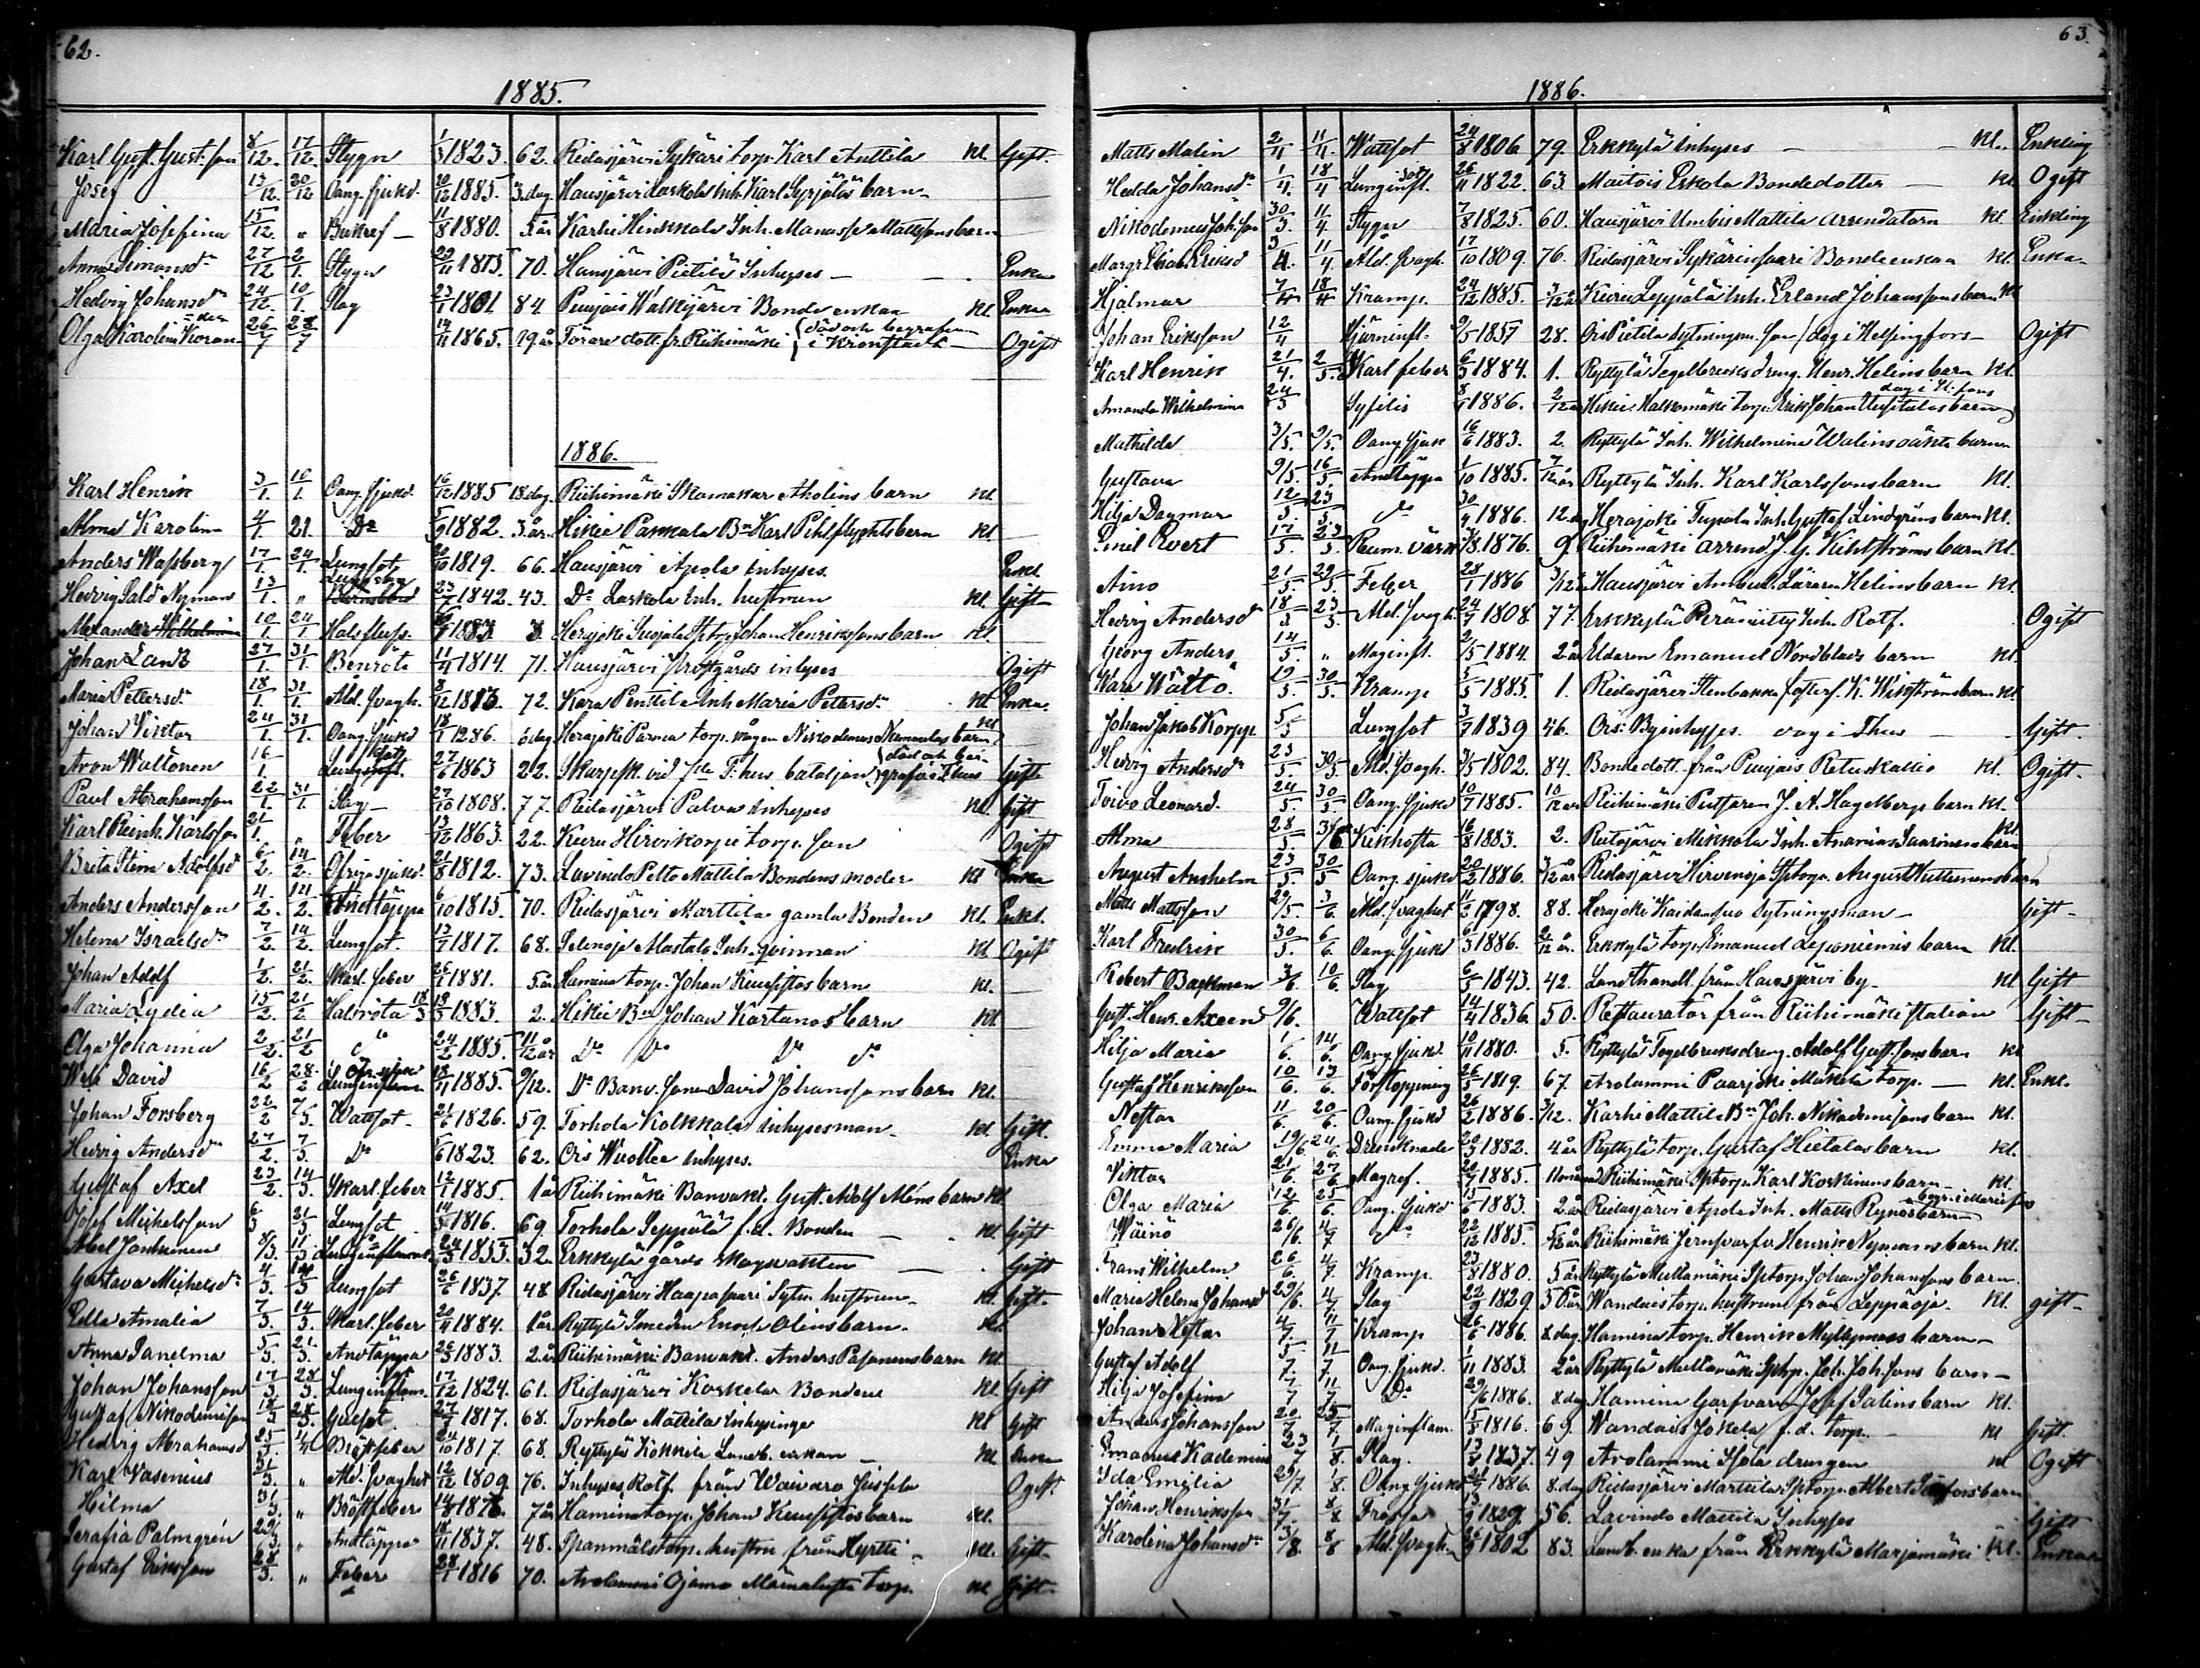 62.
1885.
Karl Gust. Gust:son 8/12. 17/12. Stygn 1823. 62. Ridasjärvi Sykäri torp. Karl Anttila kl. Gift.
Josef 13/12. 20/12 Oang. sjukd. 10/12 1885. 3. dag. Hausjärvi Laskola Inh. Karl barn
Maria Josefina 15/12. " 11/8 1880. 5 år Karhi Hinkkala Inh. Manasse Mattssons barn
Anna Simonsdr 27/12 2/1. Stygn 29/11 1815 70. Hausjärvi Pietilä Inhyses Enka
Hedvig Johansdr 24/12. 10/1. Slag 23/1 1801 84. Punjais Walkjärvi Bonde enkan kl. Enka
Olga Karolina Koran 26/7 28/7 14/11 1865. 19 år dott. fr. Riihimäki (död och begrafven i Kronstadt Ogift
1886.
Karl Henrik 3/1. 10/1. Oang. sjukd. 16/12 1885 18 dag. Riihimäki Skomakar Aholins barn kl.
Alma Karolina 4/1. 21. Do 5/9 1882. 3 år. Hikiä Pankala Bn Karl barn kl
Anders Wassberg 17/1. 24/1. Lungsot 20/10 1819. 66. Hausjärvi Apola inhyses. Enkl.
Hedvig Nyman 13/1. " 23/7 1842. 43. Do Laskola Inh. hustrun kl. Gift
Alexander Wilhelmina 10/1. 24/1. Halsfluss. 1883 3. Herajoki Johan Henrikssons barn kl.
Johan Lantz 27/1. 31/1. Benröta 11/4 1814. 71. Hausjärvi Prostgårds inhyses Ogift
Maria Pettersdr 18/1. 31/1. Åld. svagh. 8/12 1813. 72. Kara Penttila Inh. Maria Petersdr kl Enka
Johan Viktor 24/1. 31/1. Oang. sjukd 18/1 1886. 6 dag Herajoki Parma torp. Nikodemus barn kl
Aron Waltonen 16/1. Lunginfl. 27/6 1863 22. vid T:hus. bataljon (död och begrafven i T:hus Gift
Paul Abrahamsson 22/1. 31/1. Slag 27/10 1808. 77. Ridasjärvi Palva inhyses kl. Gift
Karl Reinh. Karlsson 21/1. " Feber 13/12 1863. 22. Kuru Hirvikorpi torp. son Ogift
Brita Stina Adolfsdr 6/2. 14/2. 21/8 1812. 73. Lavindo Pelto Mattila Bondens moder kl Enka
Anders Andersson 4/2. 14/2. Andtäppa 6/10 1815. 70. Ridasjärvi Marttila gamla Bonden kl. Enkl.
Helena Israelsdr 7/2. 14/2. Lungsot. 13/7 1817. 68. Selänoja Mattala Inh. qvinnan kl Ogift
Johan Adolf 1/2. 21/2. Skarl. feber 26/1 1881. 5 år Hamina torp. Johan barn kl.
Maria Lydia 15/2. 21/2. Halsröta 18/3 1883. 2. Hikiä Bn Johan Kartanos barn kl.
Olga Johanna 2/2. 21/2 do 24/2 1885. 11/12 år Do Do Do do
David 16/2 28/2 Lunginflam. 13/4 1885. 9/12. Do Banv. Jonas David Johanssons barn kl.
Johan Forsberg 22/2 7/3. Wattsot 21/6 1826. 59. Torhola Kolkkala inhysesman. kl. Gift.
Hedvig Andersdr 27/2. 7/3. Do 5/6 1823. 62. Ois Wuolle inhyses. Enka
Gustaf Axel 23/2. 14/3. Skarl. feber 12/1 1885. 1 år Riihimäki Banvakt. Gust. Adolf Aléns barn kl
Josef Michelsson 6/3 21/3 Lungsot 14/3 1816. 69. Torhola Seppälä f.d. Bonden kl. Gift
Abel Janhunen 8/3. 11/3 Lunginflammat. 24/3 1853. 32. Erkkylä gårds Magnatten Gift
Gustava Michelsdr 4/3. 14/3 Lungsot 26/6 1837. 48 Ridasjärvi Haapasaari hustrun kl. Gift.
Ella Amalia 7/3. 14/3. Skarl. feber 20/4 1884. 1 år. Ryttylä Smeden Olins barn. kl.
Anna Sanelma 5/3. 21/3. Andtäppa 26/3 1883. 2 år Riihimäki Banvakt. Anders Pajanens barn kl.
Johan Johansson 17/3. 28/3. Lunginflam. 17/12 1824. 61. Ridasjärvi Koskela Bonden kl. Gift
Gustaf Nikodemisson 18/3 28/3. Gulsot 27/7 1817. 68. Torhola Mattilas Inhysinge kl. Gift
Hedvig Abrahamsd 25/3. 4/4 Bröstfeber 24/10 1817. 68. Ryttylä Kokkila Landb. enkan kl. Enka
Karl Vasenius 31/3. " Ald. svaghet 12/12 1809. 76. Inhyses Rotf. från Ogift
Hilma 31/3. " Bröstfeber 14/4 1878. 7 år Hamina torp. Johan barn kl.
Serafia Palmgrén 29/3. " Andtäppa 18/11 1837. 48. Spanmålstorp. hustru från Hyrtti kl. Gift
Gustaf Eriksson 28/3. " Feber 28/1 1816 70. Arolammi Ojama torp. kl. Gift.
63.
1886.
Matts Malin 2/4 11/4. Wattsot 24/8 1806 79. Erkkylä Inhyses kl. Enkling
Hedda Johansdr 1/4. 18/4 Lunginfl. 26/11 1822. 63. Maitois Eskola Bondedotter kl. Ogift
Nikodemus Joh:son 30/3. 11/4. Stygn 7/8 1825. 60. Hausjärvi Umbis Mattila arrendatorn kl. Enkling
Margr. Elisab. Eriksd 3/4. 11/4. Åld. svagh. 17/10 1809. 76. Ridasjärvi Sykärinsaari Bondeenkan kl. Enka
Hjalmar 7/4 18/4 Kramp. 24/12 1885. 3/12 år Kuru Leppälä Inh. Erland Johanssons barn kl
Johan Eriksson 12/4 Hjärninfl. 9/5 1857 28. Ois Pietila Sytningsm. son (dog i Helsingfors Ogift
Karl Henrik 21/4. 2/5. Skarl. feber 6/3 1884. 1. Ryttylä Tegelbruksdreng. Henr. Helins barn kl.
Amanda Wilhelmina 24/3 Syfilis 1886. 2/12 år Hikiä Halkomäki torp. Erik Johan barn dog i H:fors
Mathilda 3/5. 9/5. Oang. sjuk 16/6 1883. 2. Ryttylä Inh. Wilhelmina Walins oäkta barn
Gustava 9/5. 16/5. Andtäppa 1/10 1885. 7/12 år Ryttylä Inh. Karl Karlssons barn kl.
Hilja Dagmar 12/5. 23/5. do 30/4 1886. 12 dg Herajoki Tupala Inh. Gustaf Lindgréns barn kl.
Emil Evert 17/5. 23/5. Reum. värk 1876. 9. Riihimäki arrend. J. G. barn kl
Aino 21/5. 29/5. Feber 28/1 1886 3/12 Hausjärvi Ambul. Läraren Helins barn kl
Hedvig Andersdr 18/5. 23/5. Åld. svagh. 24/9 1808. 77. Erkkylä Peräniitty Inh. Rotf. Ogift
Georg Anders 14/5. " Maginfl. 2/5 1884. 2 år Eldaren Emanuel Nordblads barn kl.
19/5. 30/5. Kramp 5/5 1885. 1. Ridasjärvi Stenbacka K. Wikströms barn kl
Johan Jakob Korppi 5/5 Lungsot 3/7 1839 46. Ois Byinhyses. dog i T:hus Gift.
Hedvig Andersdr 23/5. 30/5. Åld. svagh. 7/5 1802. 84. Bondedott. från Punjais Retuskallio kl. Ogift.
Toivo Leonard. 24/5. 30/5. Oang. sjukd 10/7 1885. 10/12 år Riihimäki Putsaren J. A. Hagelbergs barn kl.
Alma 28/5. 3/6 Kikhosta 16/8 1883. 2. Mikkola Inh. Ananias Saarinens barn kl.
August Anshelm 23/5. 30/5 Oang. sjukd 20/2 1886. 3/12 år Ridasjärvi Hirvenoja Sptorp. August Huttunens barn
Matts Mattsson 29/5. 3/6. Åld. svaghet 11/2 1798. 88. Herajoki Kaidansuo Sytningsman Gift
Karl Fredrik 30/5. 6/6 Oang. sjukd 6/3 1886. 2/12 år. Erkkylä torp. Emanuel Leponiemis barn kl.
Robert Backman 3/6. 10/6. Slag 6/5 1843. 42. Landthandl. från Hausjärvi by kl Gift
Gust. Henr. Axeen 9/6. Wattsot 14/4 1836. 50. Restauratör från Riihimäki station Gift
Hilja Maria 1/6. 14/6. Oang. sjukd. 10/11 1880. 5. Ryttylä Tegelbruksdreng. Adolf Gust:sons barn kl
Gustaf Henriksson 10/6. 13/6. Förstoppning 26/5 1819. 67. Arolammi Paarjoki Mäkelä torp. kl. Enkl.
Nestor 11/6. 20/6. Oang. sjukd 26/2 1886. 3/12. Karhi Mattila Bn Joh. Nikodemissons barn kl.
Emma Maria 19/6 24/6. Drunknade 20/3 1882. 4 år Ryttylä torp. Gustaf Hietalas barn kl.
Viktor 21/6 27/6 Magref. 20/7 1885. 11 månad Riihimäki Sptorp. Karl Koskinens barn kl.
Olga Maria 12/6. 25/6. Oang. sjukd 15/6 1883. 2 år Ridasjärvi Apola Inh. Matts barn
Wäinö 26/6. 4/7 do 22/12 1885. 5/12 år Riihimäki Jernsvarfv. Henrik Nymans barn kl.
Frans Wilhelm 26/6. 4/7. Kramp. 23/8 1880. 5 år Ryttylä Multamäki Sptorp. Johan Johanssons barn.
Maria Helena Johansd 29/6. 4/7. Slag 22/9 1829 56 år Wandais torp. hustrun från Leppäoja. kl. gift
Johan Nestor 4/7. 11/7. Kramp 26/6 1886. 8 dag. Hamina torp. Henrik Myllymaas barn
Gustaf Adolf 5/7. 11/7. Oang. sjukd. 1/11 1883. 2 år Ryttylä Multamäki Sptorp. Joh. Joh:sons barn
Hilja Josefina 7/7 11/7 Do 29/6 1886. 8 dag Hamina Garfvaren Josef Salins barn kl.
Anders Johansson 20/7 25/7. Maginflam. 15/8 1816. 69. Wandais Jokela f.d. torp. kl Gift.
Emanuel 23/7 1/8. Slag. 13/8 1837. 49 Arolammi drengen kl Ogift
Ida Emilia 29/7. 1/8. Oang. sjukd 1886. 8 dag Ridasjärvi Marttila Sptorp. Albert barn
Johan Henriksson 31/7. 8/8 Frossa 1829. 56. Lavindo Mattila Inhyses Gift
Karolina Johansdr 3/8. 8/8 Åld. svagh. 26/9 1802 83. Landb. enka från Erkkylä Marjamäki kl. Enka